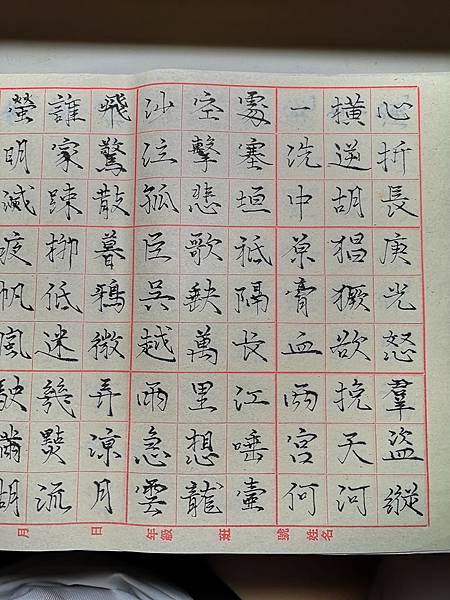 心折長庚光怒羣盜縱
橫逆胡猖獗欲挽天河
一洗中原膏血兩宮何
處塞垣祗隔長江唾壺
空擊悲歌缺萬里想龍
沙泣孤臣吳越雨急雲
飛驚散暮鴉微弄涼月
誰家踈柳低迷幾點流
螢明滅夜帆風駛滿湖
月 日 年級 班 號 姓名